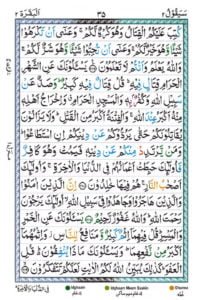 سَيَقُوْلُ ٢ ٣٥ اَلْبَقَرَة ٢
كُتِبَ عَلَيْكُمُ الْقِتَالُ وَهُوَ كُرْهٌ لَّكُمْ ۚ وَعَسٰٓى اَنْ تَكْرَهُوْا
شَيْـًٔا وَّهُوَ خَيْرٌ لَّكُمْ ۚ وَعَسٰٓى اَنْ تُحِبُّوْا شَيْـًٔا وَّهُوَ شَرٌّ لَّكُمْ ؕ
وَاللّٰهُ يَعْلَمُ وَاَنْتُمْ لَا تَعْلَمُوْنَ يَسْـَٔلُوْنَكَ عَنِ الشَّهْرِ
الْحَرَامِ قِتَالٍ فِيْهِ ؕ قُلْ قِتَالٌ فِيْهِ كَبِيْرٌ ؕ وَصَدٌّ عَنْ
سَبِيْلِ اللّٰهِ وَكُفْرٌۢ بِهٖ وَالْمَسْجِدِ الْحَرَامِ وَاِخْرَاجُ اَهْلِهٖ
مِنْهُ اَكْبَرُ عِنْدَ اللّٰهِ ۚ وَالْفِتْنَةُ اَكْبَرُ مِنَ الْقَتْلِ ؕ وَلَا يَزَالُوْنَ
يُقَاتِلُوْنَكُمْ حَتّٰى يَرُدُّوْكُمْ عَنْ دِيْنِكُمْ اِنِ اسْتَطَاعُوْا ؕ
وَمَنْ يَّرْتَدِدْ مِنْكُمْ عَنْ دِيْنِهٖ فَيَمُتْ وَهُوَ كَافِرٌ
فَاُولٰٓئِكَ حَبِطَتْ اَعْمَالُهُمْ فِى الدُّنْيَا وَالْاٰخِرَةِ ۚ وَاُولٰٓئِكَ
اَصْحٰبُ النَّارِ ۚ هُمْ فِيْهَا خٰلِدُوْنَ اِنَّ الَّذِيْنَ اٰمَنُوْا وَالَّذِيْنَ
هَاجَرُوْا وَجَاهَدُوْا فِيْ سَبِيْلِ اللّٰهِ ۙ اُولٰٓئِكَ يَرْجُوْنَ
رَحْمَتَ اللّٰهِ ؕ وَاللّٰهُ غَفُوْرٌ رَّحِيْمٌ يَسْـَٔلُوْنَكَ عَنِ الْخَمْرِ
وَالْمَيْسِرِ ؕ قُلْ فِيْهِمَآ اِثْمٌ كَبِيْرٌ وَّمَنَافِعُ لِلنَّاسِ ؗ وَاِثْمُهُمَآ
اَكْبَرُ مِنْ نَّفْعِهِمَا ؕ وَيَسْـَٔلُوْنَكَ مَاذَا يُنْفِقُوْنَ ؕ قُلِ
الْعَفْوَ ؕ كَذٰلِكَ يُبَيِّنُ اللّٰهُ لَكُمُ الْاٰيٰتِ لَعَلَّكُمْ تَتَفَكَّرُوْنَ
فِى الدُّنْيَا وَالْاٰخِرَةِ